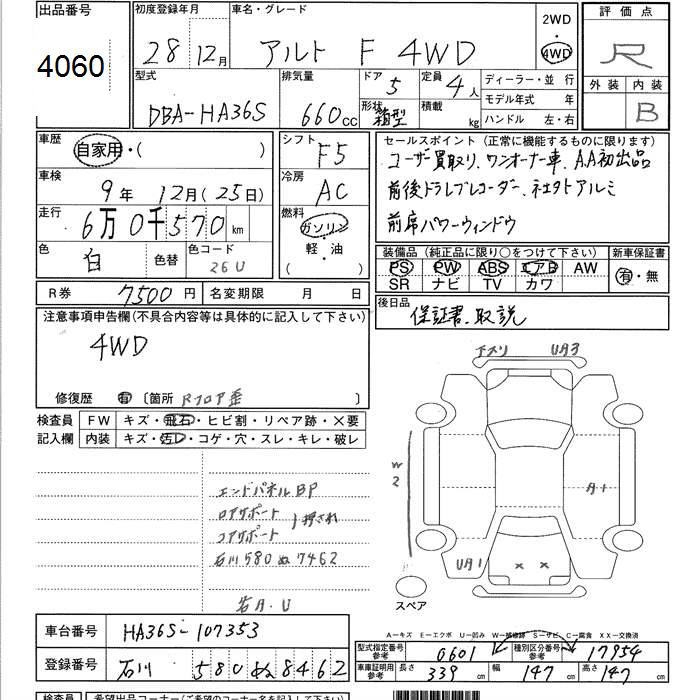 出品番号
4060
初度登録年月
28 12月
車名・グレード
アルト F 4WD
2WD
・
4WD
評価点
R
外装 内装
B
型式
DBA-HA36S
排気量
660cc
ドア
5
形状
箱型
定員
4人
積載
kg
ディーラー・並 行
モデル年式 年
ハンドル 左・右
車歴
自家用・( )
シフト
F5
車検
9年 12月(25日)
冷房
AC
走行
6万0千570km
燃料
ガソリン
・
軽・油
( )
色
白
色替
色コード
26U
R券 7500円
名変期限 月 日
セールスポイント(正常に機能するものに限り)
ユーザー買取り、ワンオーナー車、AA初出品
前後ドラレブレコーダー、社外アルミ
前席パワーウィンドウ
装備品(純正品に限り〇をつけて下さい)
PS PW ABS エアB AW
SR ナビ TV カワ
新車保証書
有・無
後日品
保証書、取説
注意事項申告欄(不具合内容等は具体的に記入して下さい)
4WD
修復歴 有 〔箇所 Rフロア歪 〕
検査員
記入欄
FW キズ・飛石・ヒビ割・リペア跡・×要
内装 キズ・汚レ・コゲ・穴・スレ・キレ・破レ
エンドパネルBP
ロアサポート
コアサポート
押され
石川580ぬ7462
下メリ
UA3
W2
A1
UA1
× ×
スペア
A―キズ E―エクボ U―凹み W―補修跡 S―サビ C―腐食 XX―交換済
車台番号 HA36S-107353
登録番号 石川 580ぬ8462
型式指定番号
参考
0601
種別区分番号
参考
17954
車庫証明用
参考
長さ 339cm
幅 147cm
高さ 147cm
検査員
希望出品コーナー(ご希望のコーナー名を記入下さい)